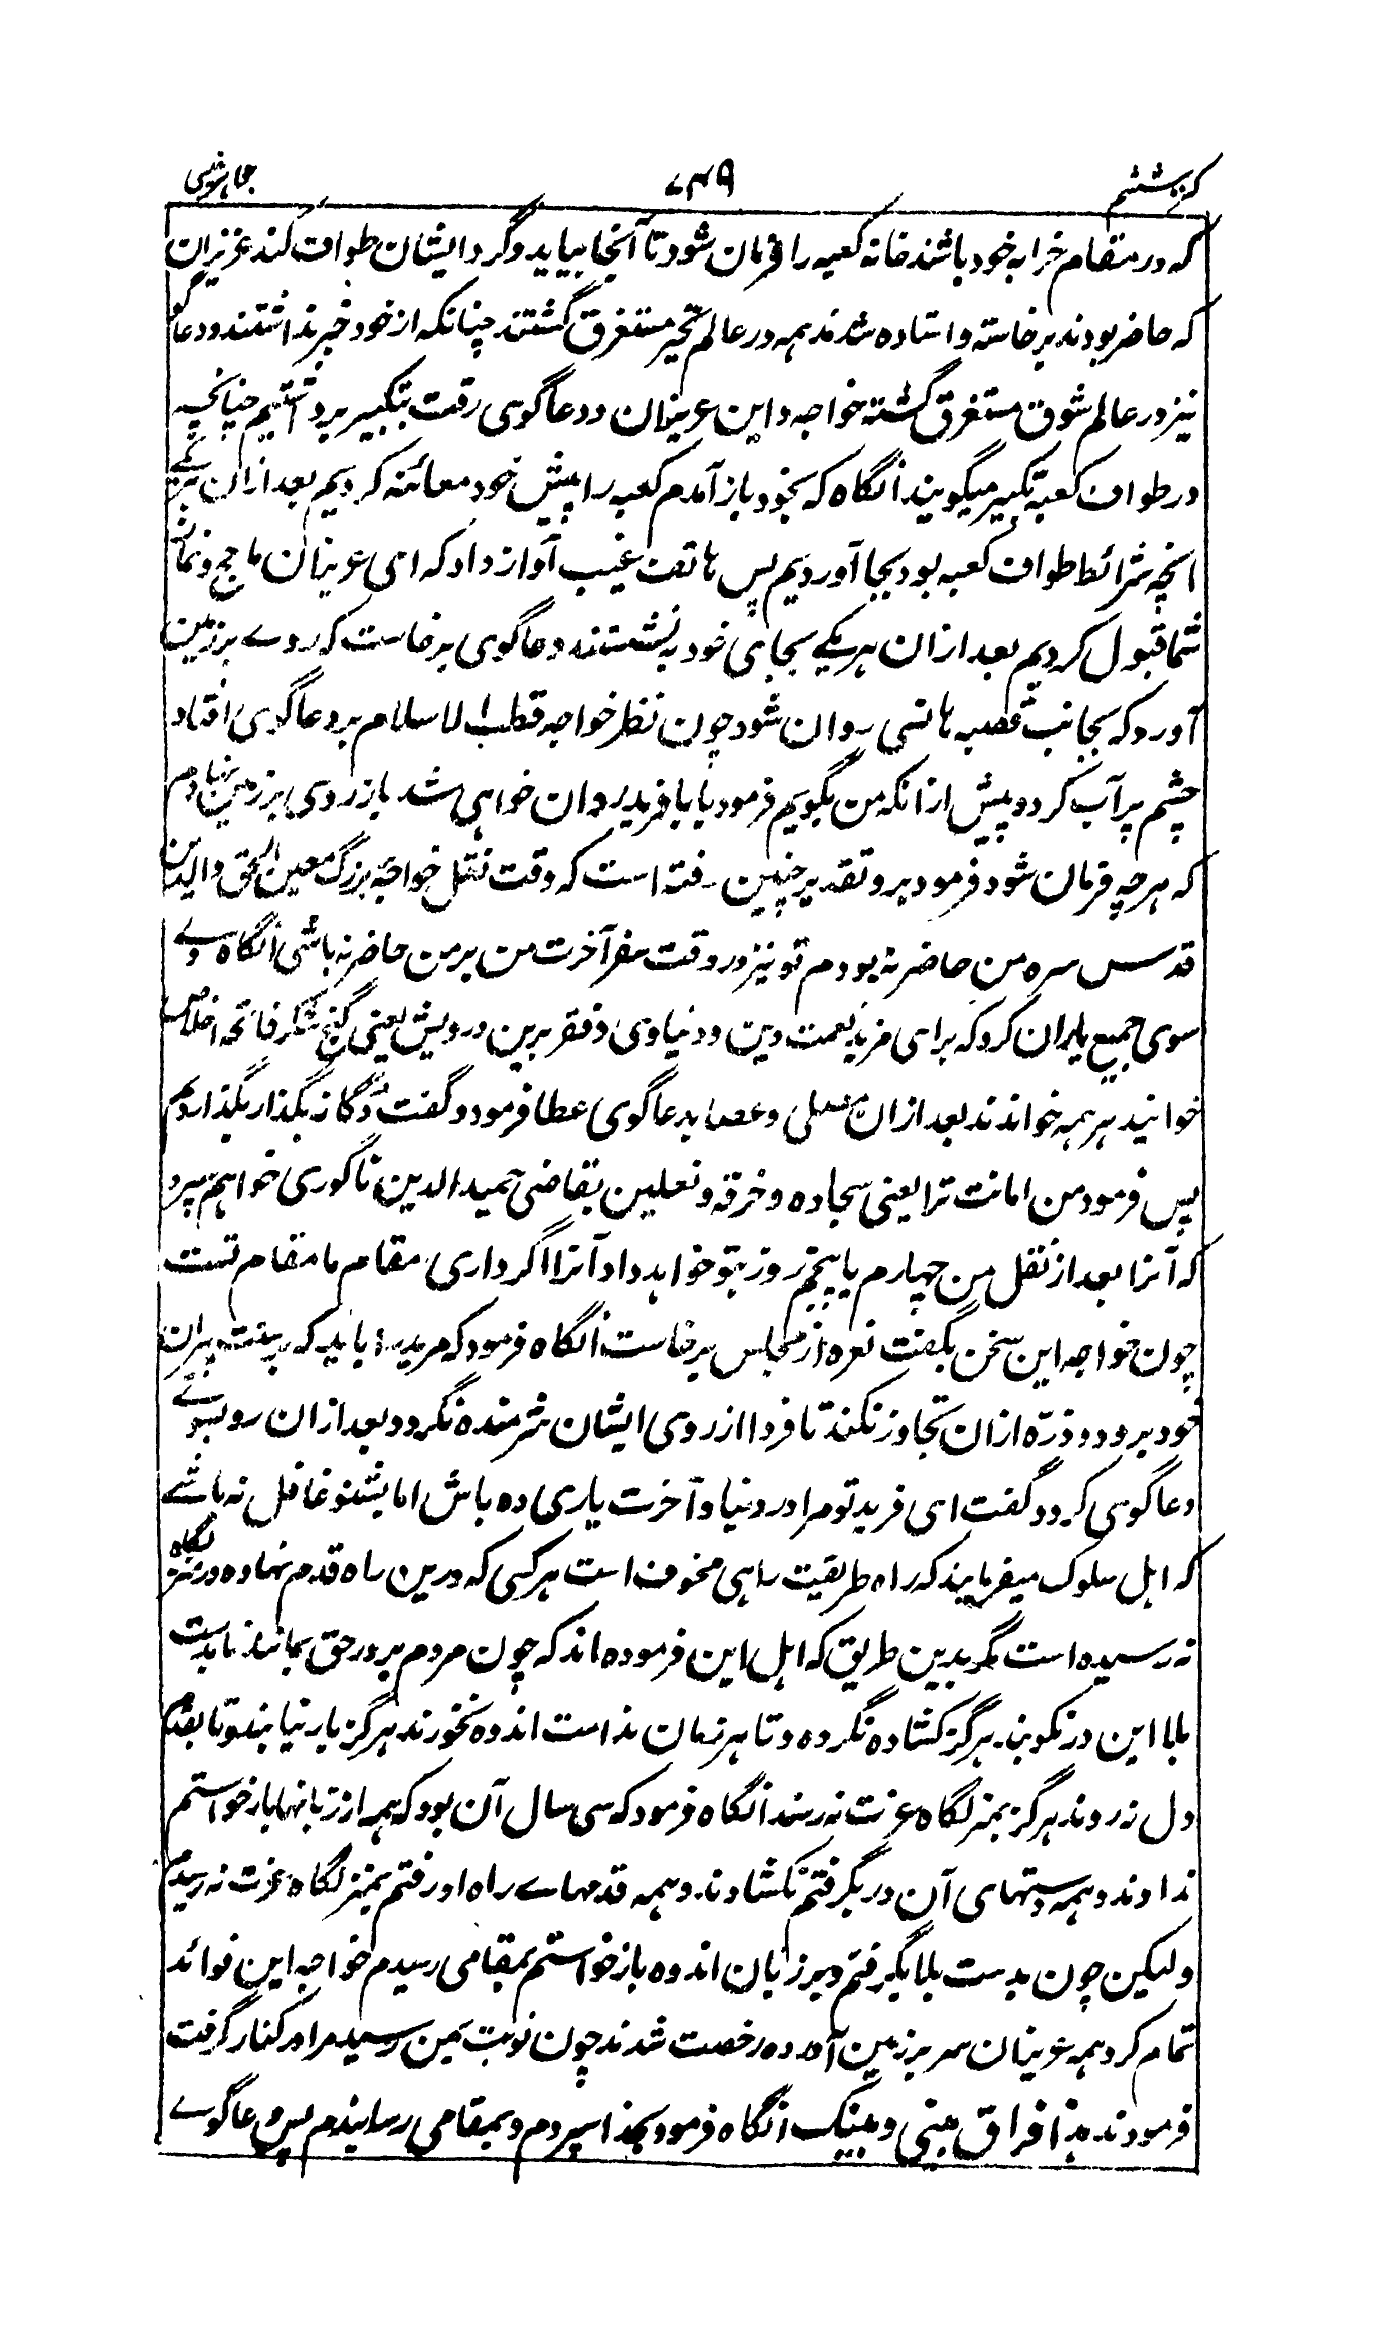 گنج ششم ۷۴۹ جواهر فریدی
که در مقام خرابه خود باشند خانه کعبه را فرمان شود تا آنجا بیاید و گرد ایشان طواف کند عزیزان
که حاضر بودند برخاسته و استاده شدند همه در عالم تحیر مستغرق گشتند چنانکه از خود خبر نداشتند و دعاگو
نیز در عالم شوق مستغرق گشته خواجه و این عزیزان و دعاگوی رقت بتکبیر برداشتیم چنانچه
در طواف کعبه تکبیر میگویند انگاه که بخود باز آمدم کعبه را پیش خود معائنه کردیم بعد ازان هر یکے
انچه شرائط طواف کعبه بود بجا آوردیم پس هاتف غیب آواز داد که ای عزیزان ما حج و نماز
شما قبول کردیم بعد ازان هر یکے بجای خود به نشستند دعاگوی برخاست که روے بر زمین
آورد که بجانب قصبه هانسی روان شود چون نظر خواجه قطب الاسلام بر دعاگوی افتاد
چشم پر آب کرد و پیش ازانکه من بگویم فرمود بابا فرید روان خواهی شد باز روی بر زمین نهادم
که هرچه فرمان شود فرمود برو تقدیر چنین رفته است که وقت نقل خواجه بزرگ معین الحق والدین
قدس سره من حاضر نه بودم تو نیز در وقت سفر آخرت من بر من حاضر نه باشی انگاه روے
سوی جمیع یاران کرد که برای مزید نعمت دین و دنیاوی و فقر برین درویش یعنی گنج شکر فاتحه اخلاص
خوانید هر همه خواندند بعد ازان مصلی و عصا بدعاگوی عطا فرمود و گفت دوگانه بگذار بگذاردیم
پس فرمود من امانت ترا یعنی سجاده و خرقه و نعلین بقاضی حمید الدین ناگوری خواهم سپرد
که آنرا بعد از نقل من چهارم یا پنجم روز بتو خواهد داد آنرا اگر داری مقام ما مقام تست
چون خواجه این سخن بگفت نعره از مجلس برخاست انگاه فرمود که مرید را باید که بر سنت پیران
خود برود و ذرّه ازان تجاوز نکند تا فردا از روی ایشان شرمنده نگردد بعد ازان رو بسوئے
دعاگوی کرد و گفت ای فرید تو مرا در دنیا و آخرت یاری ده باش اما بشنو غافل نه باشے
که اهل سلوک میفرمایند که راه طریقت راهی مخوف است هر کسی که درین راه قدم نهاده در منزلگاه
نه رسیده است مگر بدین طریق که اهل این فرموده اند که چون مردم بر در حق بمانند تا بدست
بلا این در نکوبند هرگز کشاده نگردد و تا هر زمان ندامت اندوه نخورند هرگز بار نیابند و تا بقدم
دل نروند هرگز بمنزلگاه عزت نرسند انگاه فرمود که سی سال آن بود که همه از زبانها بار خواستم
ندادند و همه دستهای آن در بگرفتم نکشادند و همه قدمهاے راه او رفتم بمنزلگاه عزت نه رسیدم
ولیکن چون بدست بلا بگرفتم و بر زبان اندوه باز خواستم بمقامی رسیدم خواجه این فوائد
تمام کرد همه عزیزان سر بر زمین آورده رخصت شدند چون نوبت بمن رسید مرا در کنار گرفت
فرمودند هذا فراق بینی و بینک انگاه فرمود بخدا سپردم و بمقامی رسانیدم پس دعاگوے